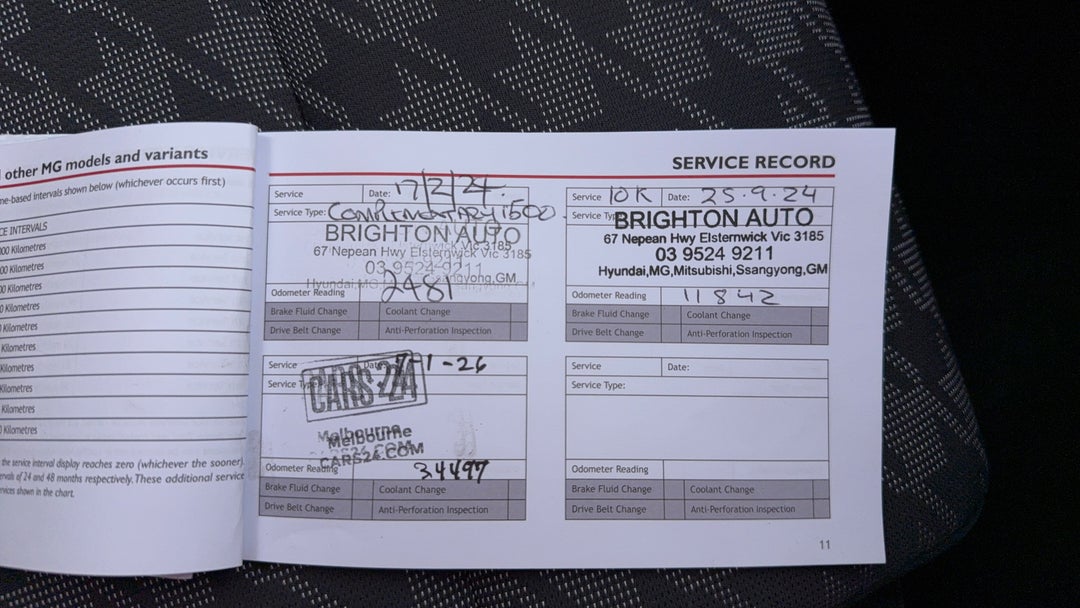 other MG models and variants
me-based intervals shown below (whichever occurs first)
CE INTERVALS
000 Kilometres
000 Kilometres
0 Kilometres
0 Kilometres
Kilometres
Kilometres
Kilometres
Kilometres
Kilometres
Kilometres
the service interval display reaches zero (whichever the sooner).
of 24 and 48 months respectively. These additional service
shown in the chart.
SERVICE RECORD
Service Date: 17/2/24.
Service Type: COMPLEMENTARY 1500
BRIGHTON AUTO
67 Nepean Hwy Elsternwick Vic 3185
03 9524 9211
Odometer Reading 2481
Brake Fluid Change Coolant Change
Drive Belt Change Anti-Perforation Inspection
Service 10K Date: 25.9.24
Service Typ
BRIGHTON AUTO
67 Nepean Hwy Elsternwick Vic 3185
03 9524 9211
Hyundai,MG,Mitsubishi,Ssangyong,GM
Odometer Reading 11842
Brake Fluid Change Coolant Change
Drive Belt Change Anti-Perforation Inspection
Service Dat -1-26
Service Typ
CARS24
Melbourne
CARS24.COM
Odometer Reading 34497
Brake Fluid Change Coolant Change
Drive Belt Change Anti-Perforation Inspection
Service Date:
Service Type:
Odometer Reading
Brake Fluid Change Coolant Change
Drive Belt Change Anti-Perforation Inspection
11